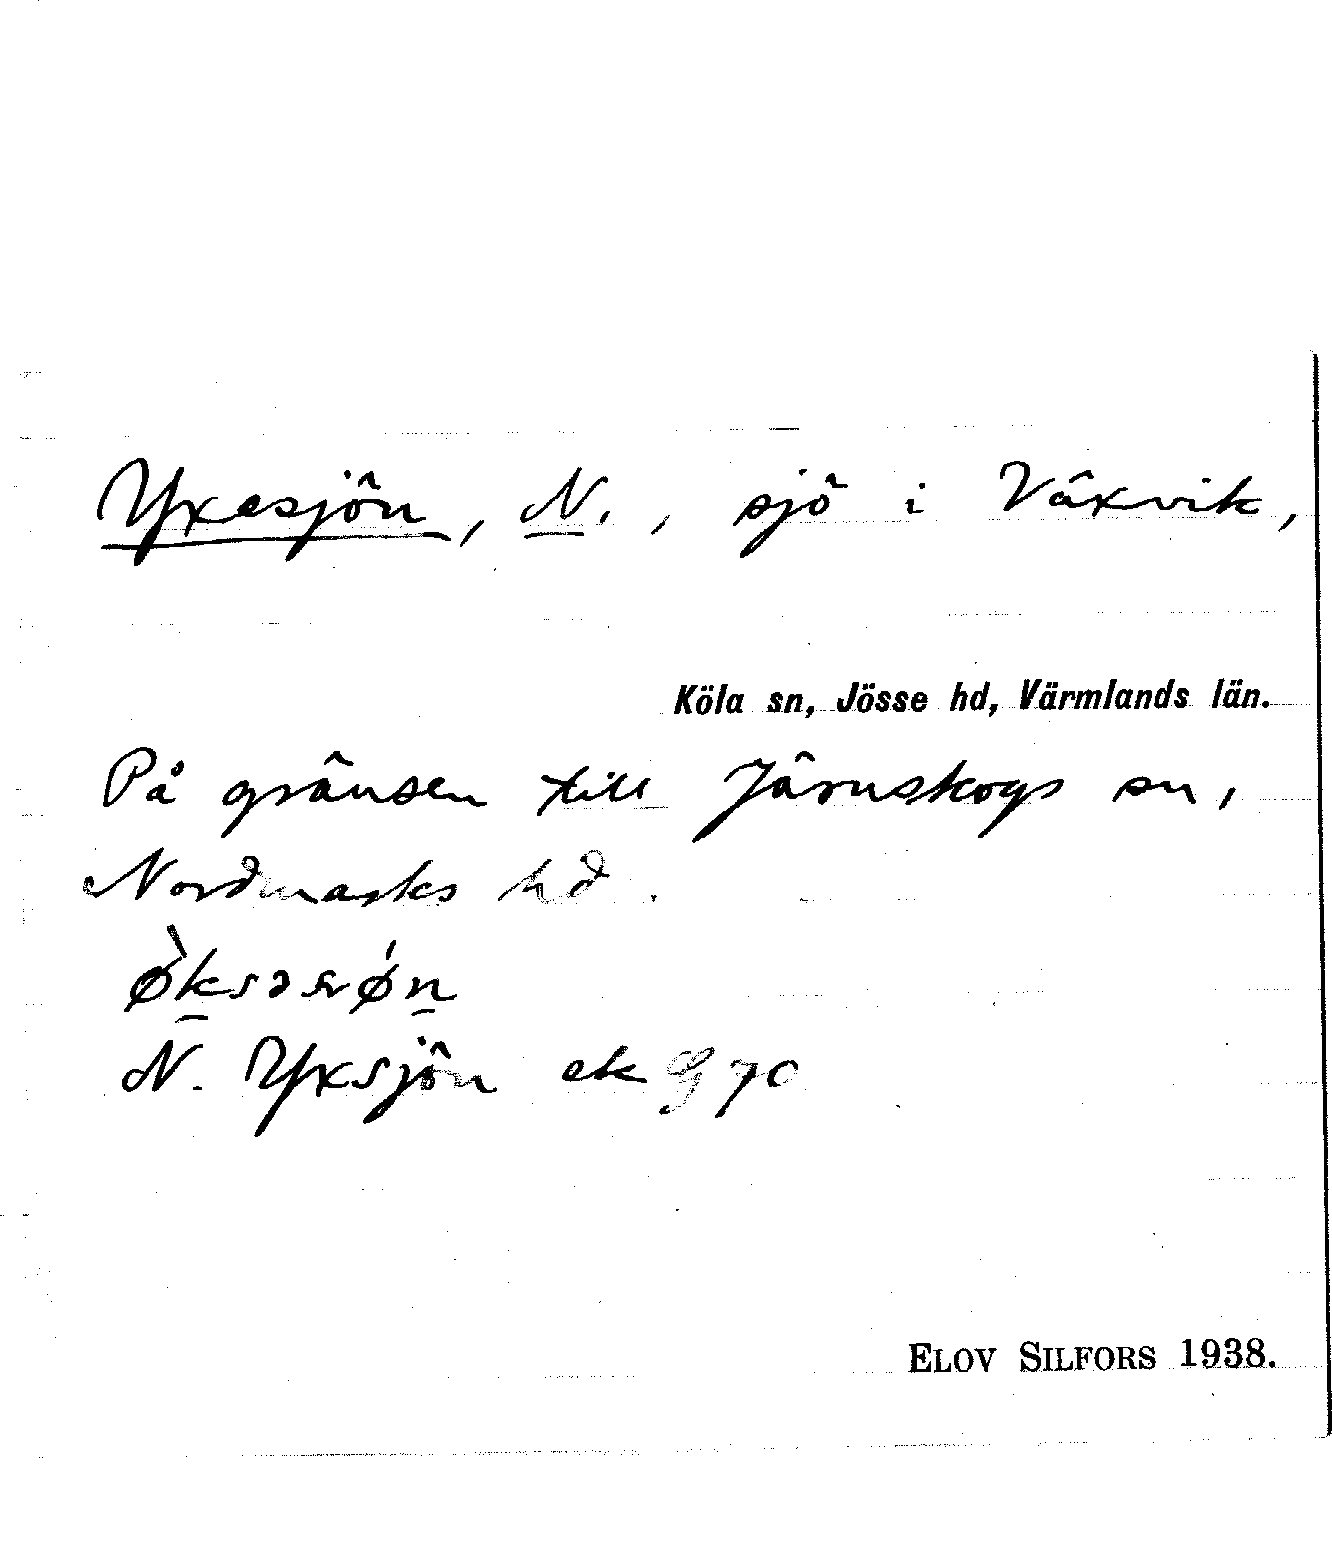 Yxesjön, N., sjö i Växvik,
Köla sn, Jösse hd, Värmlands län.
På gränsen till Järnskogs sn,
Nordmarks hd.
N. Yxsjön ek G 70
ELOV SILFORS 1938.